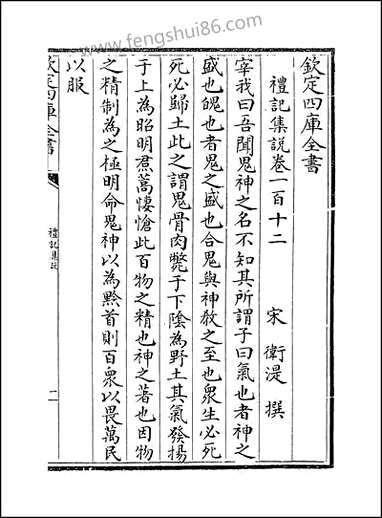 www.fengshui86.com
欽定四庫全書
禮記集說卷一百十二 宋 衛湜 撰
宰我曰吾聞鬼神之名不知其所謂子曰氣也者神之
盛也魄也者鬼之盛也合鬼與神教之至也衆生必死
死必歸土此之謂鬼骨肉斃于下陰為野土其氣發揚
于上為昭明焄蒿悽愴此百物之精也神之著也因物
之精制為之極明命鬼神以為黔首則百衆以畏萬民
以服
欽定四庫全書
禮記集說